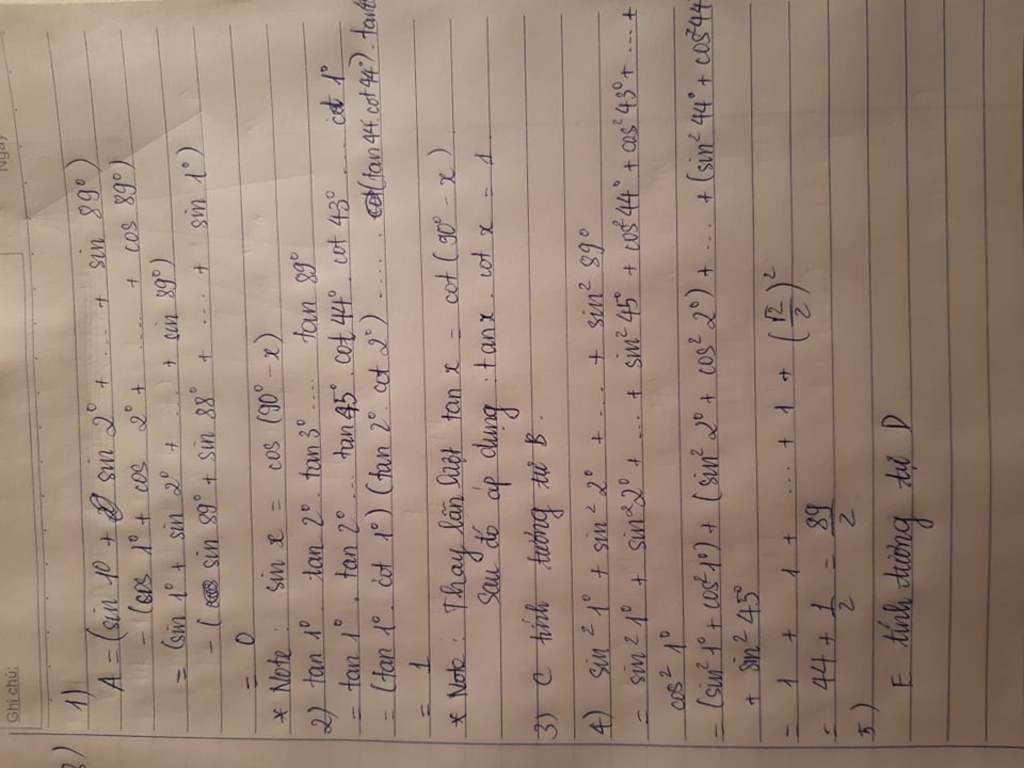 Ghi chú:
Ngày
1)
A = (sin 1° + sin 2° + .... + sin 89°)
- (cos 1° + cos 2° + ...... + cos 89°)
= (sin 1° + sin 2° + .... + sin 89°)
- (sin 89° + sin 88° + .... + sin 1°)
= 0
* Note: sin x = cos (90° - x)
2) tan 1°. tan 2°. tan 3° ..... tan 89°
= tan 1°. tan 2° .... tan 45°. cot 44°. cot 43° ...... cot 1°
= (tan 1°. cot 1°) (tan 2°. cot 2°) ..... (tan 44 cot 44°). tan4
= 1
* Note: Thay lần lượt tan x = cot (90° - x)
Sau đó áp dụng: tan x. cot x = 1
3) C tính tương tự B.
4) sin² 1° + sin² 2° + .... + sin² 89°
= sin² 1° + sin² 2° + .... + sin² 45° + cos² 44° + cos² 43° + .... +
cos² 1°
= (sin² 1° + cos² 1°) + (sin² 2° + cos² 2°) + .... + (sin² 44° + cos² 44
+ sin² 45°
= 1 + 1 + .... + 1 + (√2/2)²
= 44 + 1/2 = 89/2
5)
E tính tương tự D